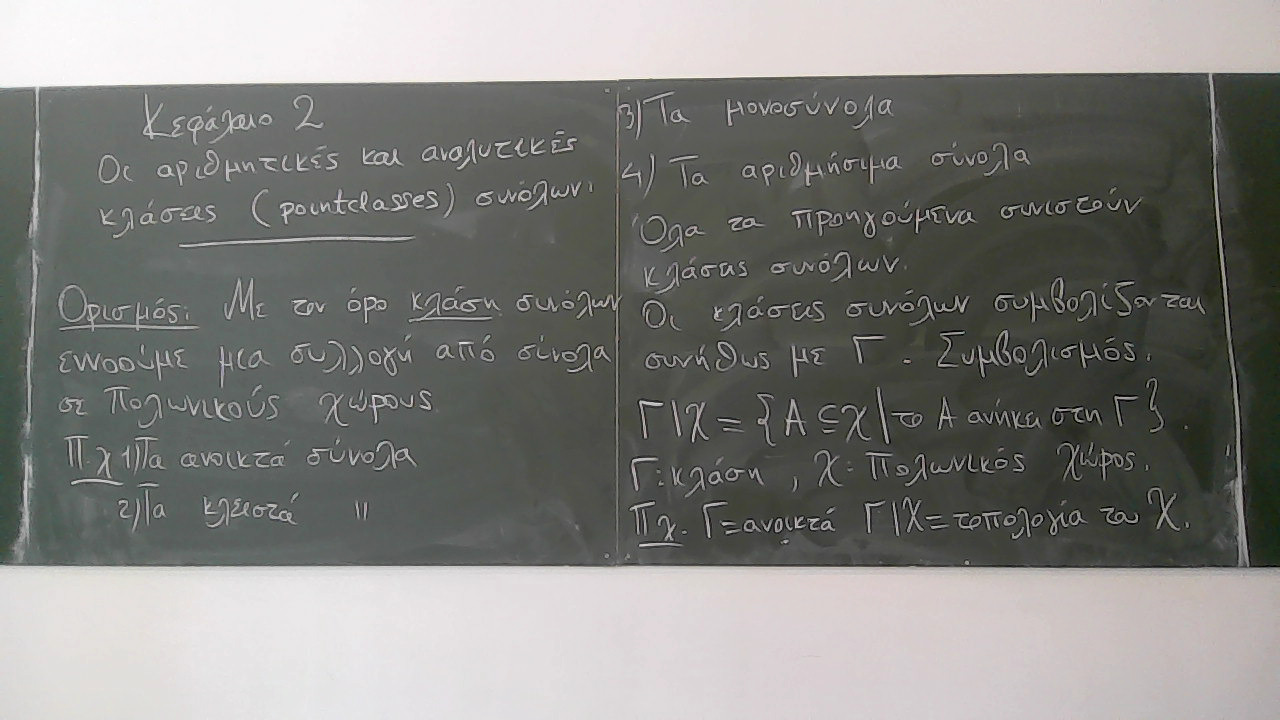 Κεφάλαιο 2
Οι αριθμητικές και αναλυτικές
κλάσεις (pointclasses) συνόλων.
Ορισμός: Με τον όρο κλάση συνόλων
εννοούμε μια συλλογή από σύνολα
σε Πολωνικούς χώρους.
Π.χ 1) Τα ανοικτά σύνολα
2) Τα κλειστά "
3) Τα μονοσύνολα
4) Τα αριθμήσιμα σύνολα
Όλα τα προηγούμενα συνιστούν
κλάσεις συνόλων.
Οι κλάσεις συνόλων συμβολίζονται
συνήθως με Γ. Συμβολισμός.
Γ|χ = {A ⊆ χ | το A ανήκει στη Γ}.
Γ: κλάση, χ: Πολωνικός χώρος.
Πχ. Γ = ανοικτά Γ|χ = τοπολογία του χ.